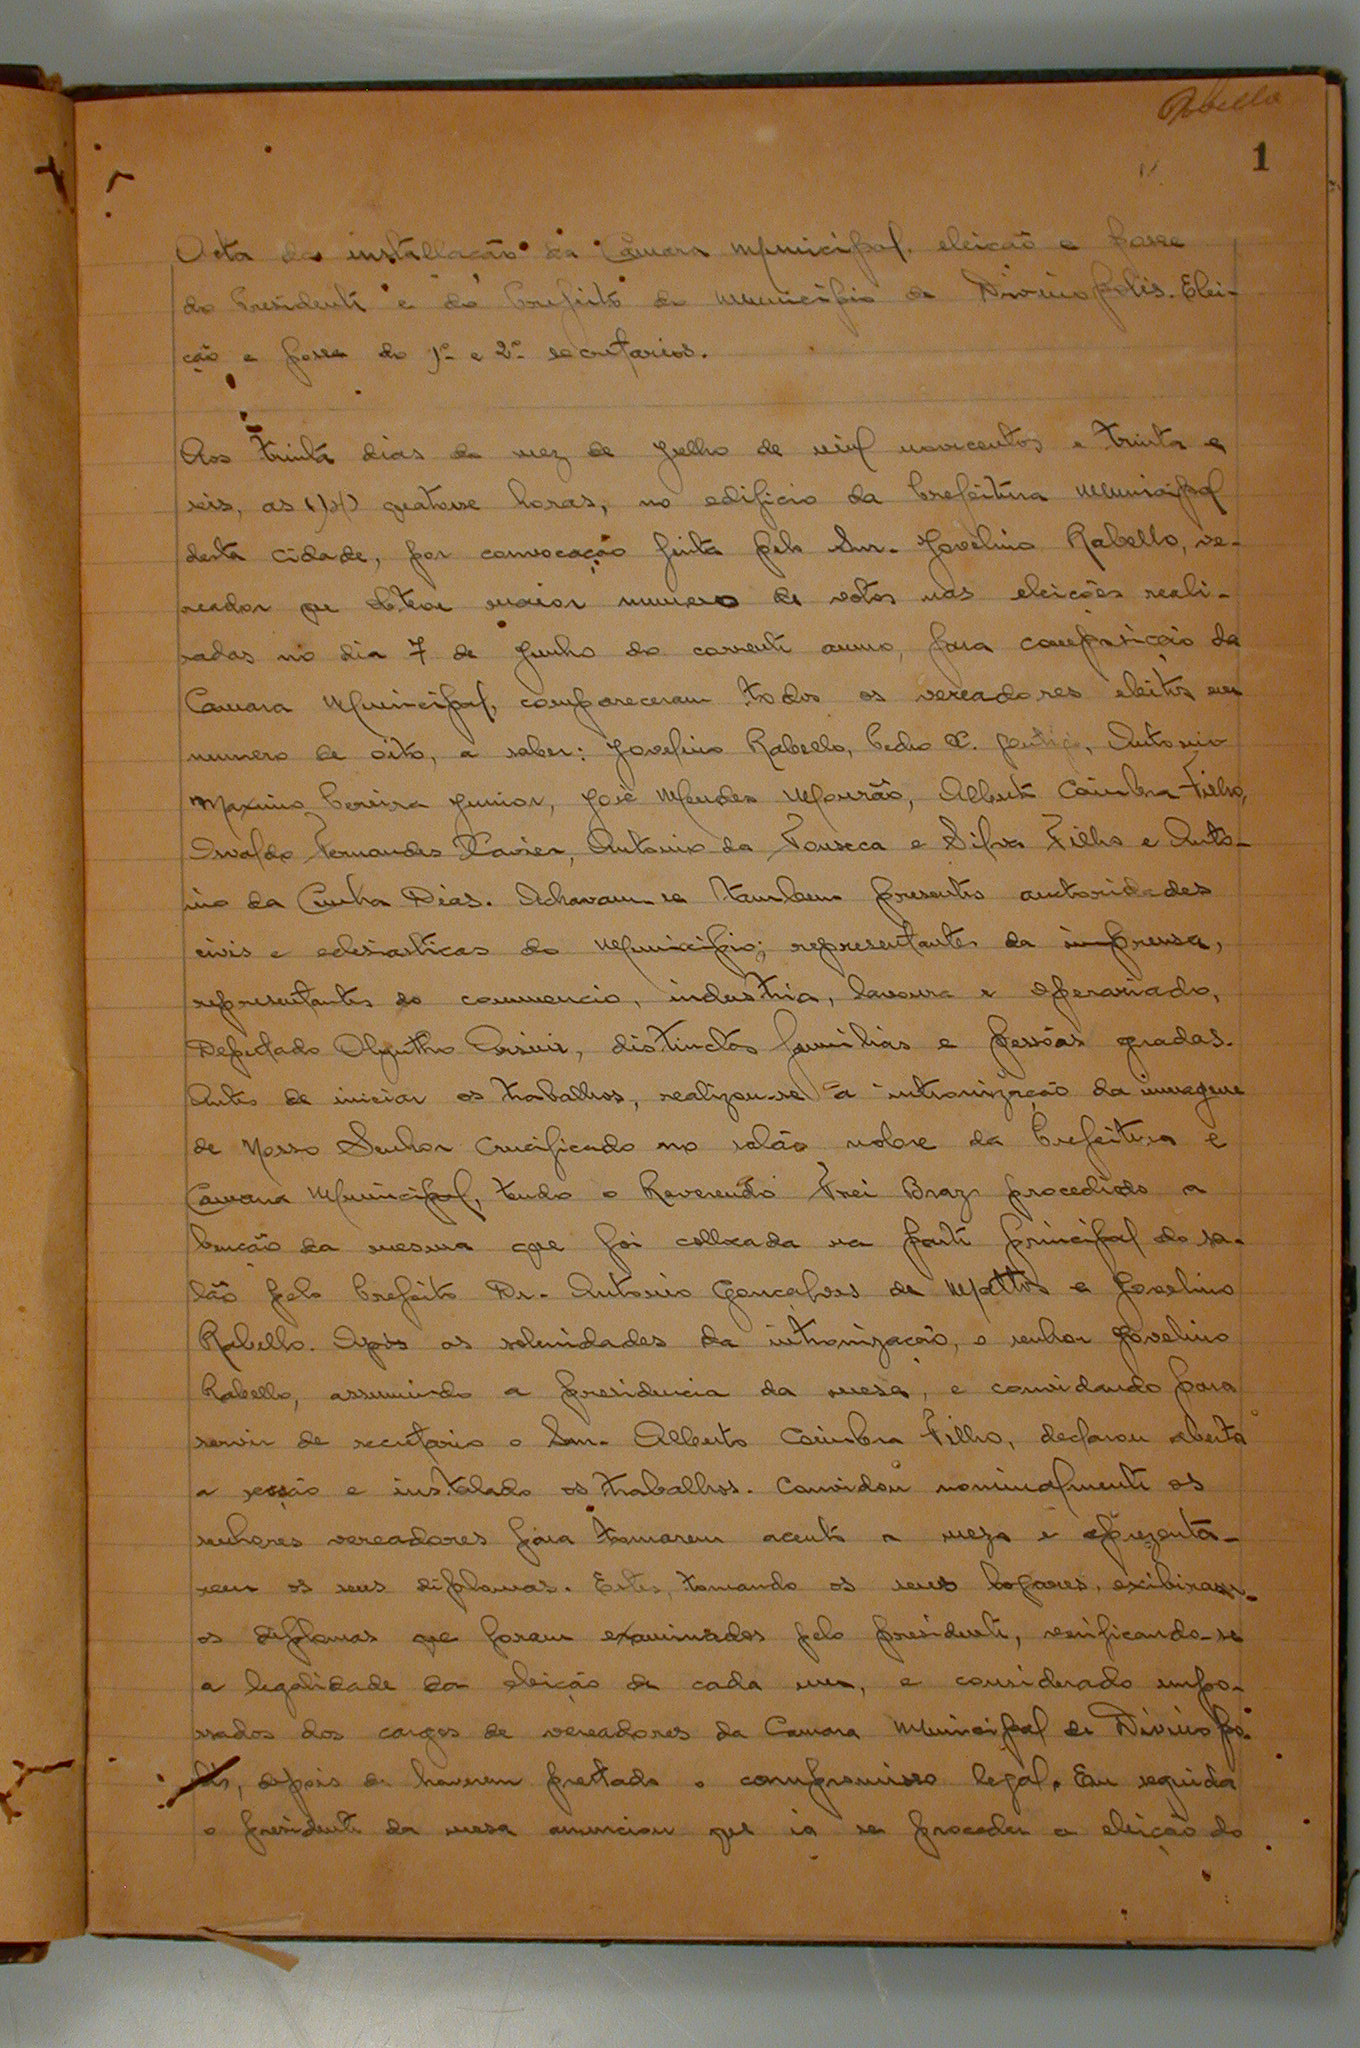 Rabello
1
Acta da installação da Câmara Municipal, eleição e posse
do Presidente e do Prefeito do Municipio de Divinopolis. Elei-
ção e posse do 1º e 2º secretarios.
Aos trinta dias do mez de Julho de mil novecentos e trinta e
seis, as (14) quatorse horas, no edificio da Prefeitura Municipal
desta cidade, por convocação feita pelo Snr. Jovelino Rabello, ve-
reador que obteve maior numero de votos nas eleições reali-
sadas no dia 7 de Junho do corrente anno, para composição da
Camara Municipal, compareceram todos os vereadores eleitos em
numero de oito, a saber: Jovelino Rabello, Pedro X. Gontijo, Antonio
Maximo Pereira Junior, José Mendes Mourão, Alberto Coimbra Filho,
Osvaldo Fernandes Xavier, Antonio da Fonseca e Silva Filho e Anto-
nio da Cunha Dias. Achavam-se tambem presentes auctoridades
civis e eclesiasticas do Municipio; representantes da imprensa,
representantes do commercio, industria, lavoura e operariado,
Deputado Olyntho Orsini, distinctas familias e pessôas gradas.
Antes de iniciar os trabalhos, realizou-se a intronização da imagem
de Nosso Senhor Crucificado no salão nobre da Prefeitura e
Camara Municipal, tendo o Reverendo Frei Braz procedido a
benção da mesma que foi collocada na parte principal do sa-
lão pelo Prefeito Dr. Antonio Gonçalves de Mattos e Jovelino
Rabello. Após as solenidades da intronização, o senhor Jovelino
Rabello, assumindo a presidencia da mesa, e convidando para
servir de secretario o Snr. Alberto Coimbra Filho, declarou aberta
a sessão e instalado os trabalhos. Convidou nominalmente os
senhores vereadores para tomarem acento a meza e aprezenta-
rem os seus diplomas. Estes, tomando os seus logares, exibiram
os diplomas que foram examinados pelo presidente, verificando-se
a legalidade da eleição de cada um, e considerado empo-
ssados dos cargos de vereadores da Camara Municipal de Divinopo-
lis, depois de haverem prestado o compromisso legal. Em seguida
o presidente da mesa anunciou que ia se proceder a eleição do